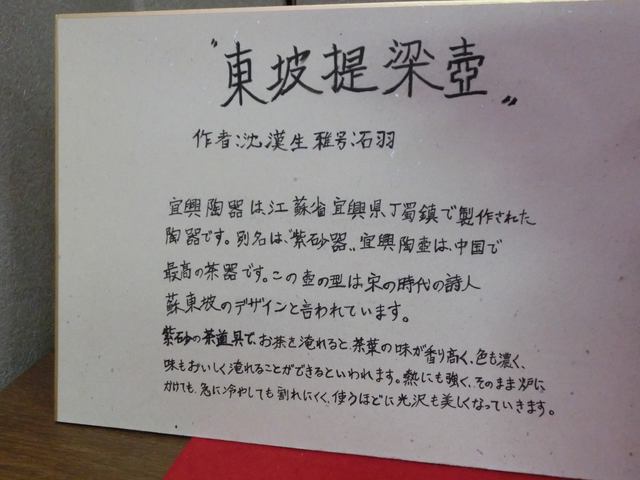 〝東坡提梁壺〟
作者:沈漢生 雅号:石羽
宜興陶器は、江蘇省宜興県丁蜀鎮で製作された
陶器です。別名は、〝紫砂器〟宜興陶壺は、中国で
最高の茶器です。この壺の型は宋の時代の詩人
蘇東坡のデザインと言われています。
紫砂の茶道具で、お茶を淹れると、茶葉の味が香り高く、色も濃く、
味もおいしく淹れることができるといわれます。熱にも強く、そのまま炉に
かけても、急に冷やしても割れにくく、使うほどに光沢も美しくなっていきます。